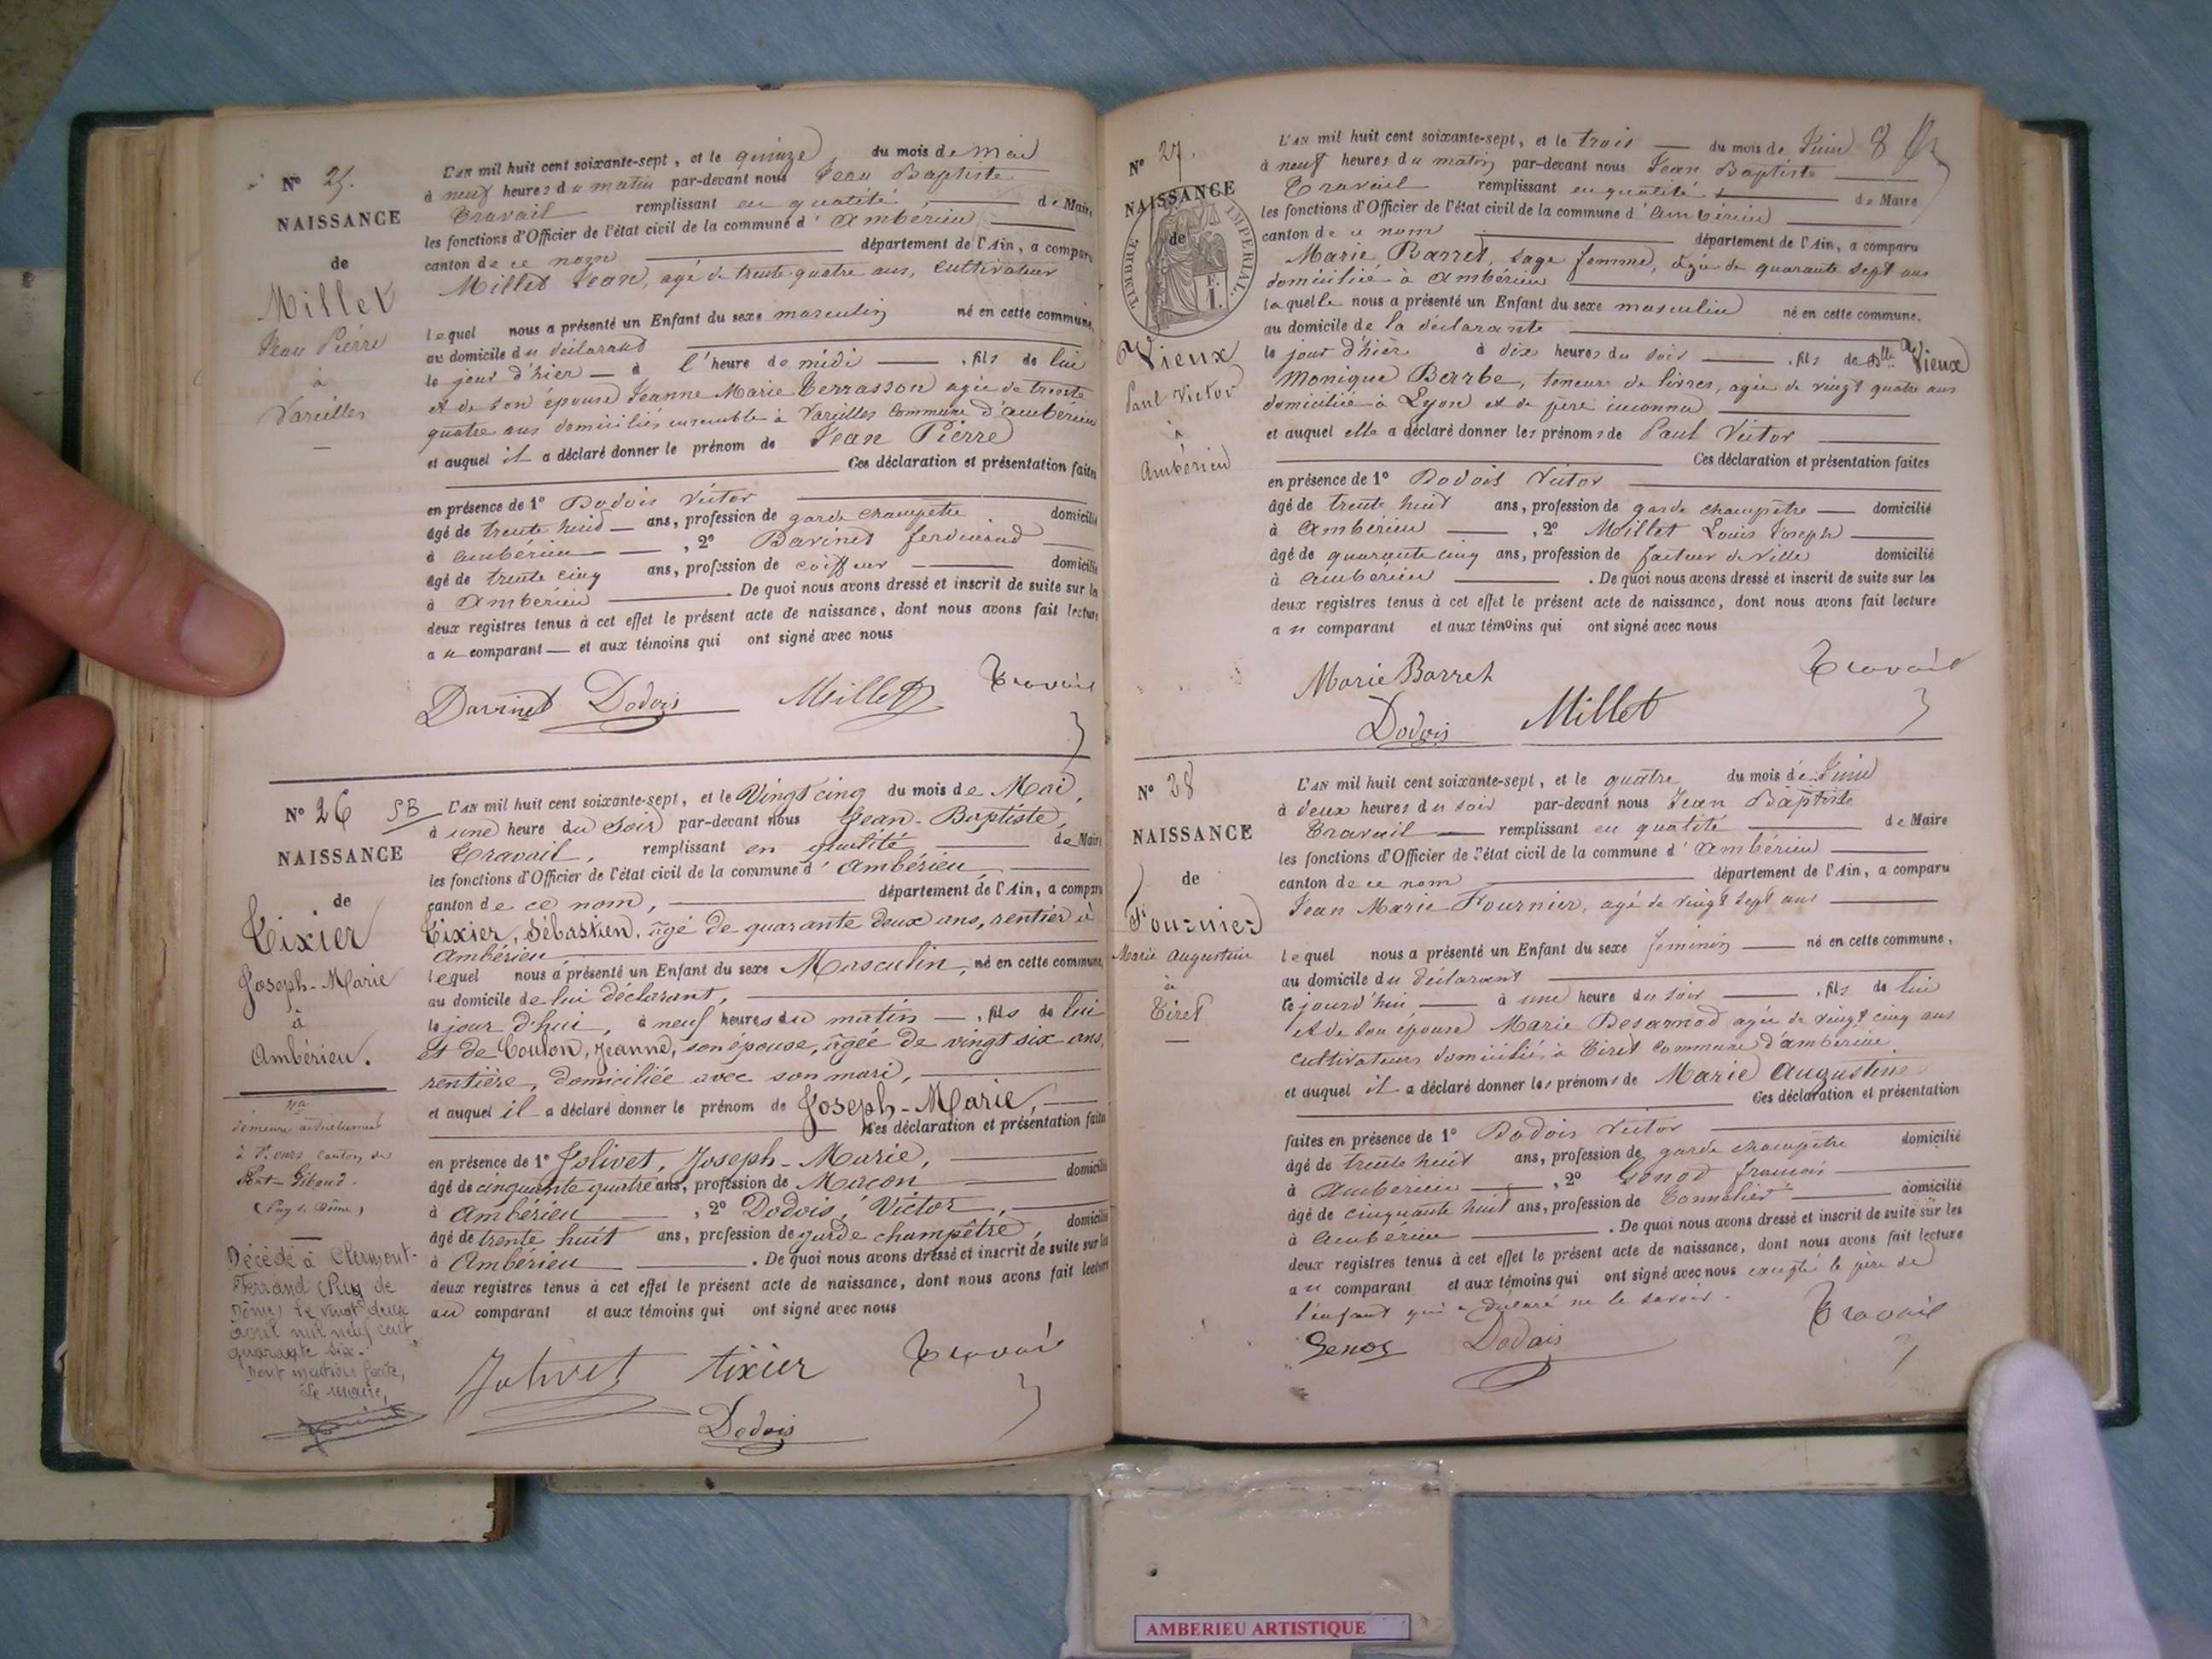 N° 25.
NAISSANCE
de
Millet
Jean Pierre
à
Vareilles
L'AN mil huit cent soixante-sept, et le quinze du mois de Mai
à neuf heures du matin par-devant nous Jean Baptiste
Travail remplissant en qualité de Maire
les fonctions d'Officier de l'état civil de la commune d'Ambérieu
canton de ce nom département de l'Ain, a comparu
Millet Jean, agé de trente quatre ans, cultivateur
lequel nous a présenté un Enfant du sexe masculin né en cette commune,
au domicile du déclarant
le jour d'hier à l'heure de midi, fils de lui
et de son épouse Jeanne Marie Terrasson agée de trente
quatre ans domiciliés ensemble à Vareilles commune d'ambérieu
et auquel il a déclaré donner le prénom de Jean Pierre
Ces déclaration et présentation faites
en présence de 1° Dodois Victor
âgé de trente huit ans, profession de garde champetre domicilié
à ambérieu, 2° Davinet ferdinand
âgé de trente cinq ans, profession de coiffeur domicilié
à Ambérieu. De quoi nous avons dressé et inscrit de suite sur les
deux registres tenus à cet effet le présent acte de naissance, dont nous avons fait lecture
au comparant et aux témoins qui ont signé avec nous
Davinet Dodois Millet Travail
N° 26 SB
NAISSANCE
de
Tixier
Joseph-Marie
à
Ambérieu.
demeure actuellement
à St ours canton de
Pont-Gibaud.
(Puy de Dôme)
Décédé à Clermont-
Ferrand (Puy de
Dôme) le vingt deux
avril mil neuf cent
quarante six.
Dont mention faite,
Le maire,
L'AN mil huit cent soixante-sept, et le Vingt cinq du mois de Mai,
à une heure du Soir par-devant nous Jean-Baptiste,
Travail, remplissant en qualité de Maire
les fonctions d'Officier de l'état civil de la commune d'Ambérieu,
canton de ce nom, département de l'Ain, a comparu
Tixier, Sébastien, âgé de quarante deux ans, rentier à
Ambérieu,
lequel nous a présenté un Enfant du sexe Masculin, né en cette commune,
au domicile de lui déclarant,
le jour d'hui, à neuf heures du matin, fils de lui
et de Coulon, Jeanne, son épouse, âgée de vingt six ans,
rentière, domiciliée avec son mari,
et auquel il a déclaré donner le prénom de Joseph-Marie,
Ces déclaration et présentation faites
en présence de 1° Jolivet, Joseph-Marie,
âgé de cinquante quatre ans, profession de Maçon domicilié
à Ambérieu, 2° Dodois, Victor,
âgé de trente huit ans, profession de garde champêtre, domicilié
à Ambérieu. De quoi nous avons dressé et inscrit de suite sur les
deux registres tenus à cet effet le présent acte de naissance, dont nous avons fait lecture
au comparant et aux témoins qui ont signé avec nous
Jolivet tixier Travail
Dodois
8
N° 27.
NAISSANCE
de
TIMBRE IMPERIAL
Vieux
Paul Victor
à
Ambérieu
L'AN mil huit cent soixante-sept, et le trois du mois de Juin
à neuf heures du matin par-devant nous Jean Baptiste
Travail remplissant en qualité de Maire
les fonctions d'Officier de l'état civil de la commune d'Ambérieu
canton de ce nom département de l'Ain, a comparu
Marie Barret, sage femme, agée de quarante sept ans
domiciliée à Ambérieu
laquelle nous a présenté un Enfant du sexe masculin né en cette commune,
au domicile de la déclarante
le jour d'hier à dix heures du soir, fils de Dlle Vieux
Monique Berrbe, teneure de livres, agée de vingt quatre ans
domiciliée à Lyon et de père inconnu
et auquel elle a déclaré donner les prénoms de Paul Victor
Ces déclaration et présentation faites
en présence de 1° Dodois Victor
âgé de trente huit ans, profession de garde champêtre domicilié
à Ambérieu, 2° Millet Louis Joseph
âgé de quarante cinq ans, profession de facteur de Ville domicilié
à Ambérieu. De quoi nous avons dressé et inscrit de suite sur les
deux registres tenus à cet effet le présent acte de naissance, dont nous avons fait lecture
au comparant et aux témoins qui ont signé avec nous
Marie Barret Travail
Dodois Millet
N° 28
NAISSANCE
de
Fournier
Marie Augustine
à
Tiret
L'AN mil huit cent soixante-sept, et le quatre du mois de Juin
à deux heures du soir par-devant nous Jean Baptiste
Travail remplissant en qualité de Maire
les fonctions d'Officier de l'état civil de la commune d'Ambérieu
canton de ce nom département de l'Ain, a comparu
Jean Marie Fournier, agé de vingt sept ans
lequel nous a présenté un Enfant du sexe feminin né en cette commune,
au domicile du déclarant
le jourd'hui à une heure du soir, fils de lui
et de son épouse Marie Desarmod agée de vingt cinq ans
cultivateurs domiciliés à Tiret commune d'ambérieu
et auquel il a déclaré donner les prénoms de Marie Augustine
Ces déclaration et présentation
faites en présence de 1° Dodois Victor
âgé de trente huit ans, profession de garde champêtre domicilié
à Ambérieu, 2° Genod francois
âgé de cinquante huit ans, profession de Tonnelier domicilié
à Ambérieu. De quoi nous avons dressé et inscrit de suite sur les
deux registres tenus à cet effet le présent acte de naissance, dont nous avons fait lecture
au comparant et aux témoins qui ont signé avec nous excepté le père de
l'enfant qui a déclaré ne le savoir.
Genod Dodois Travail
AMBERIEU ARTISTIQUE